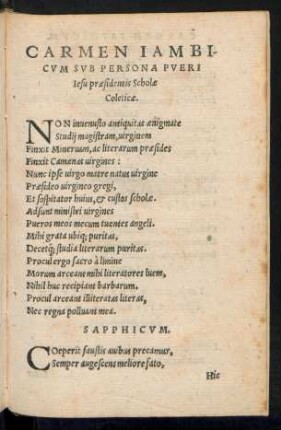 CARMEN IAMBI
CVM SVB PERSONA PVERI
Iesu præsidentis Scholæ
Coleticæ.
NON inuenusto antiquitas ænigmate
Studij magistram, uirginem
Finxit Mineruam, ac literarum præsides
Finxit Camœnas uirgines:
Nunc ipse uirgo matre natus uirgine
Præsideo uirgineo gregi,
Et sospitator huius, & custos scholæ.
Adsunt ministri uirgines
Pueros meos mecum tuentes angeli.
Mihi grata ubiq; puritas,
Decetq; studia literarum puritas.
Procul ergo sacro à limine
Morum arceant mihi literatores luem,
Nihil huc recipiant barbarum.
Procul arceant illiteratas literas,
Nec regna polluant mea.
SAPPHICVM.
COeperit faustis auibus precamur,
Semper augescens meliore fato,
Hic